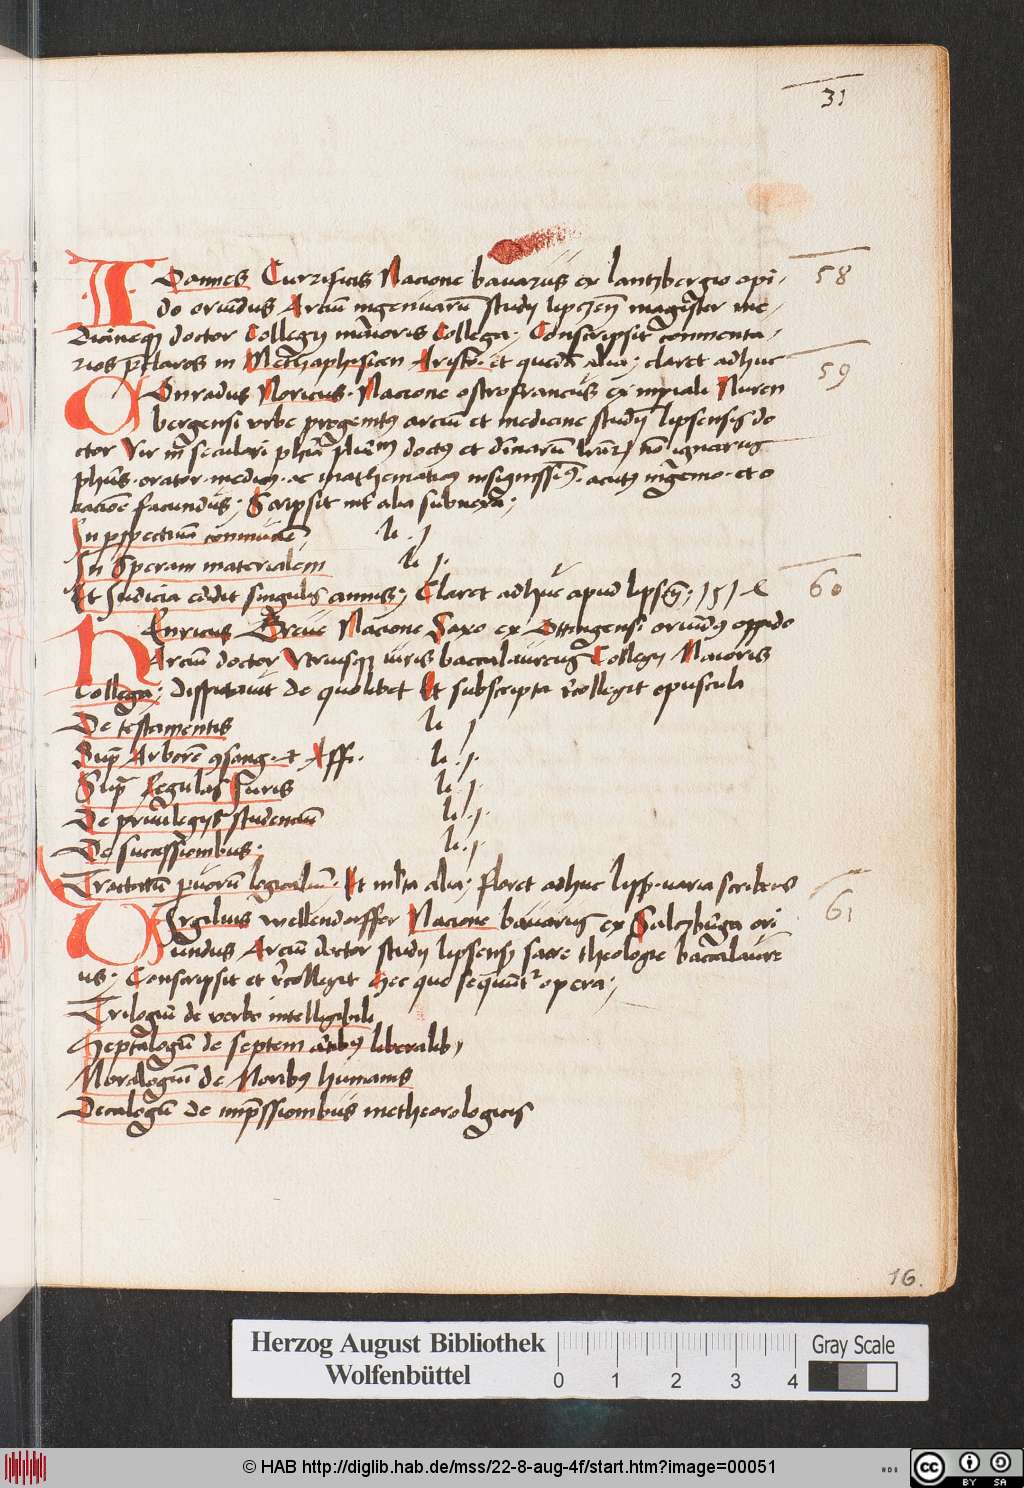 31
58
IOannes Currificis Nacione bavarus ex lantzbergio opi-
do oriundus Arciū ingenuarū studij lipczeñ magister me-
dicineqȝ doctor Collegij maioris Collega. Conscripsit commenta-
rios p̄claros in Methaphisicen Aristo. et quedā alia; claret adhuc
59
COnradus Noricus. Nacione ostrofrancus ex impiali Nuren
bergensi urbe progenitꝰ arciū et medicine studij lipsensis do
ctor Vir in seculari phīa plurimū doctꝰ et divinarū lrarū nō ignarus
phūs. orator. medicꝰ. ac mathematicꝰ insignissimꝰ. acutꝰ ingenio. et o
racione facundus; Scripsit int̄ alia subnexa;
In pspectivā commūnē li. j
In Speram materialem li j.
Et Judicia edidit singulis annis; Claret adhuc apud lipseñ;
60
HEnricus Greve Nacione Saxo ex Ottingensi oriūdꝰ oppido
Arciū doctor Vtriusqȝ iuris baccalaureus Collegij Maioris
Collega; disputavit de quolibet Et subscripta collegit opuscula
De testamentis li j
Sup̄ Arborē ꝯsang. et Affi. li. j.
Sup̄ Regulas Juris li. j.
De privilegijs studenciū li. j.
De successionibus; li. j.
Tractatū pvorū logicaliū. Et mlta alia; floret adhuc lipsſ. varia scribens
61
VIrgilius wellendorffer Nacione bavarus ex Salczburga ori
undus Arciū doctor studij lipsensis sacre theologie baccalaure
us; Conscripsit et collegit hec que sequūtr opera;
Trilogiū de verbo intelligibili
Heptalogiū de septem artibꝰ liberalibꝰ
Moralogiū de Moribꝰ humanis
Decalogiū de imp̄ssionibus metheorologicis
16.
Herzog August Bibliothek
Wolfenbüttel
0 1 2 3 4
Gray Scale
© HAB http://diglib.hab.de/mss/22-8-aug-4f/start.htm?image=00051
cc BY SA